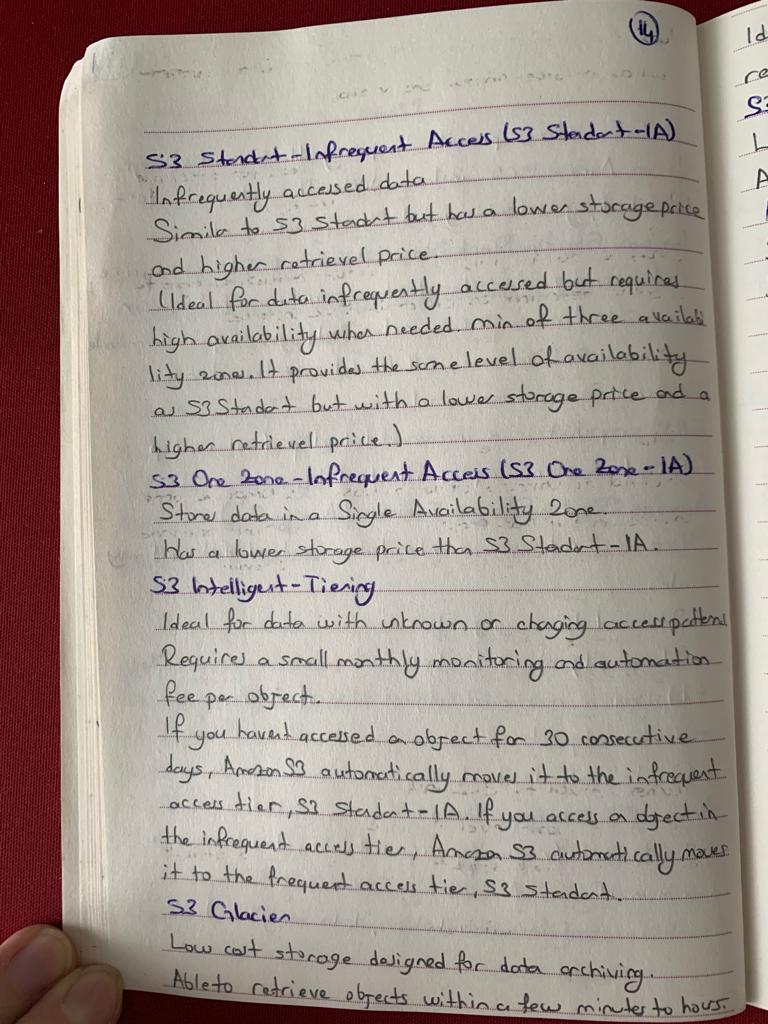 14
S3 Standart-Infrequent Access (S3 Standart-IA)
Infrequently accessed data
Similar to S3 Standart but has a lower storage price
and higher retrievel price.
(Ideal for data infrequently accessed but requires
high availability when needed. min of three availabi
lity zones. It provides the same level of availability
as S3 Standart but with a lower storage price and a
higher retrievel price.)
S3 One Zone-Infrequent Access (S3 One Zone-IA)
Stores data in a Single Availability Zone.
Has a lower storage price than S3 Standart-IA.
S3 Intelligent-Tiering
Ideal for data with unknown or changing access patterns
Requires a small monthly monitoring and automation
fee per object.
If you havent accessed an object for 30 consecutive
days, Amazon S3 automatically moves it to the infrequent
access tier, S3 Standart-IA. If you access an object in
the infrequent access tier, Amazon S3 automatically moves
it to the frequent access tier, S3 Standart.
S3 Glacier
Low cost storage designed for data archiving.
Able to retrieve objects within a few minutes to hours.
Id
re
S3
L
A